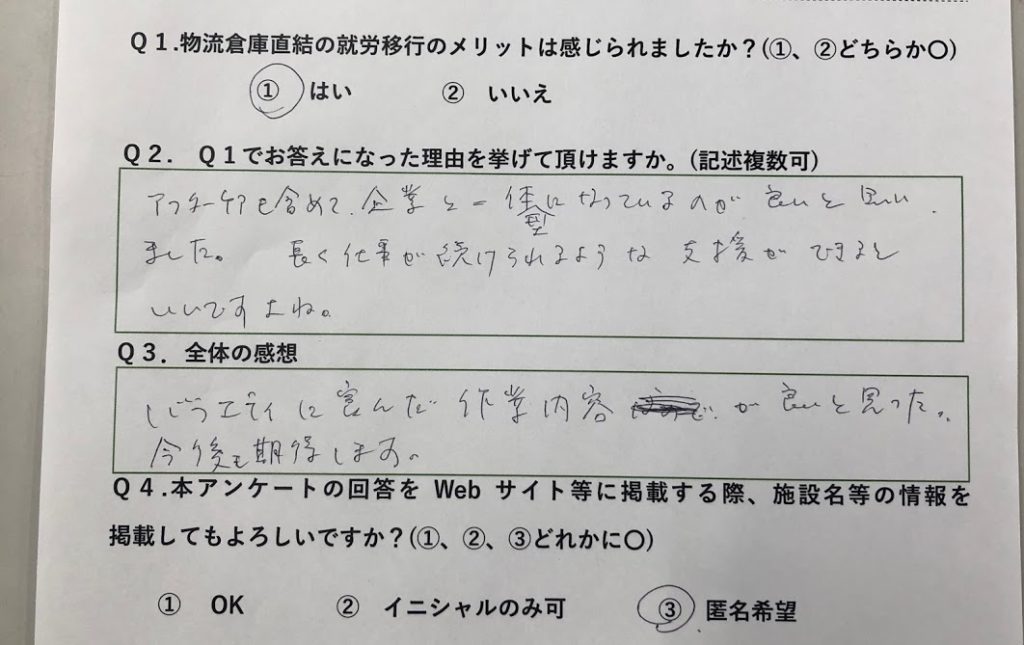 Q１.物流倉庫直結の就労移行のメリットは感じられましたか？(①、②どちらか〇)
① はい ② いいえ
Q２． Q１でお答えになった理由を挙げて頂けますか。(記述複数可)
アフターケアも含めて、企業と一体型になっているのが良いと思い
ました。 長く仕事が続けられるような支援ができると
いいですよね。
Q３．全体の感想
バラエティに富んだ作業内容が良いと思った。
今後も期待します。
Q４.本アンケートの回答を Web サイト等に掲載する際、施設名等の情報を
掲載してもよろしいですか？(①、②、③どれかに〇)
① OK ② イニシャルのみ可 ③ 匿名希望